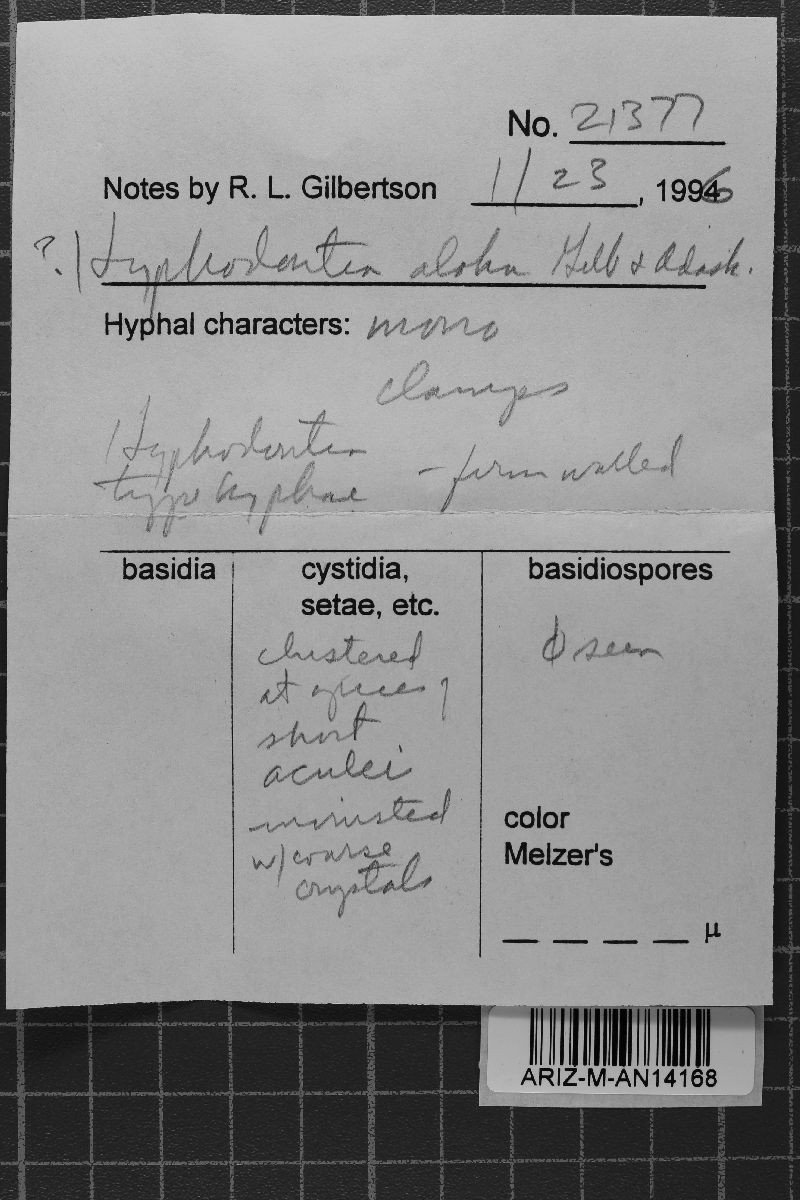 No. 21377
Notes by R. L. Gilbertson 1/23, 1996
?. Hyphodontia aloha Gilb & Adask.
Hyphal characters: mono
clamps
Hyphodontia
type hyphae - firm walled
basidia
cystidia,
setae, etc.
clustered
at apices of
short
aculei
incrusted
w/ coarse
crystals
basidiospores
seen
color
Melzer's
_ _ _ _ μ
ARIZ-M-AN14168